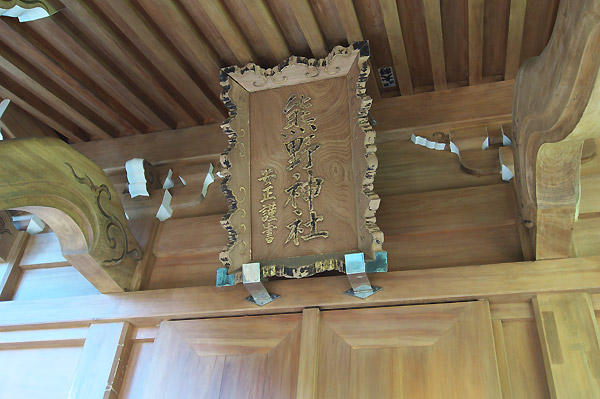 熊野神社
正謹書